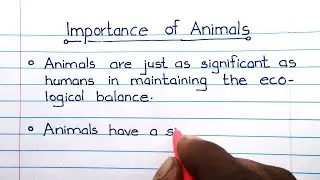 Importance of Animals
Animals are just as significant as
humans in maintaining the eco-
logical balance.
Animals have a s